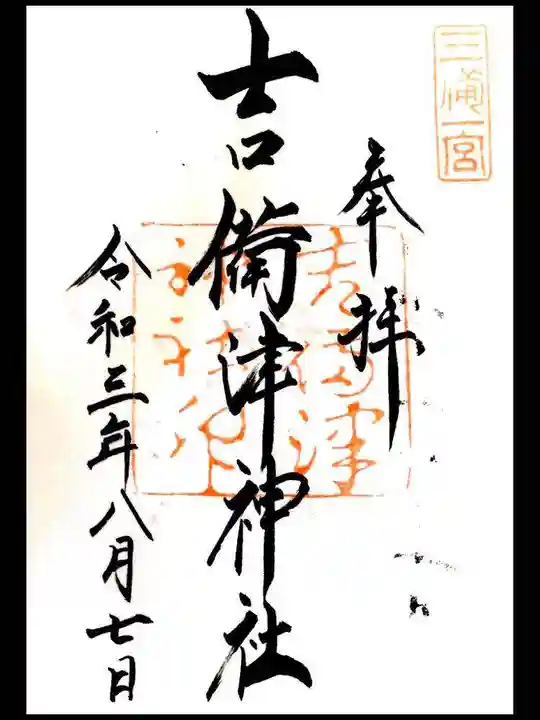 三備一宮
奉拝
吉備津神社
令和三年八月七日